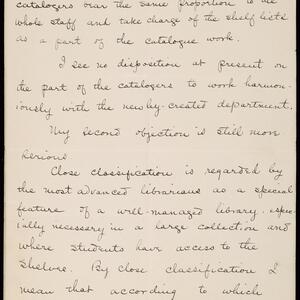 catalogers bear the same proportion to the
whole staff and take charge of the shelf lists
as a part of the catalogue work.
I see no disposition at present on
the part of the catalogers to work harmon-
iously with the newly-created department.
My second objection is still more
serious
Close classification is regarded by
the most advanced librarians as a special
feature of a well-managed library, espec-
ially necessary in a large collection and
where students have access to the
shelves. By close classification I
mean that according to which